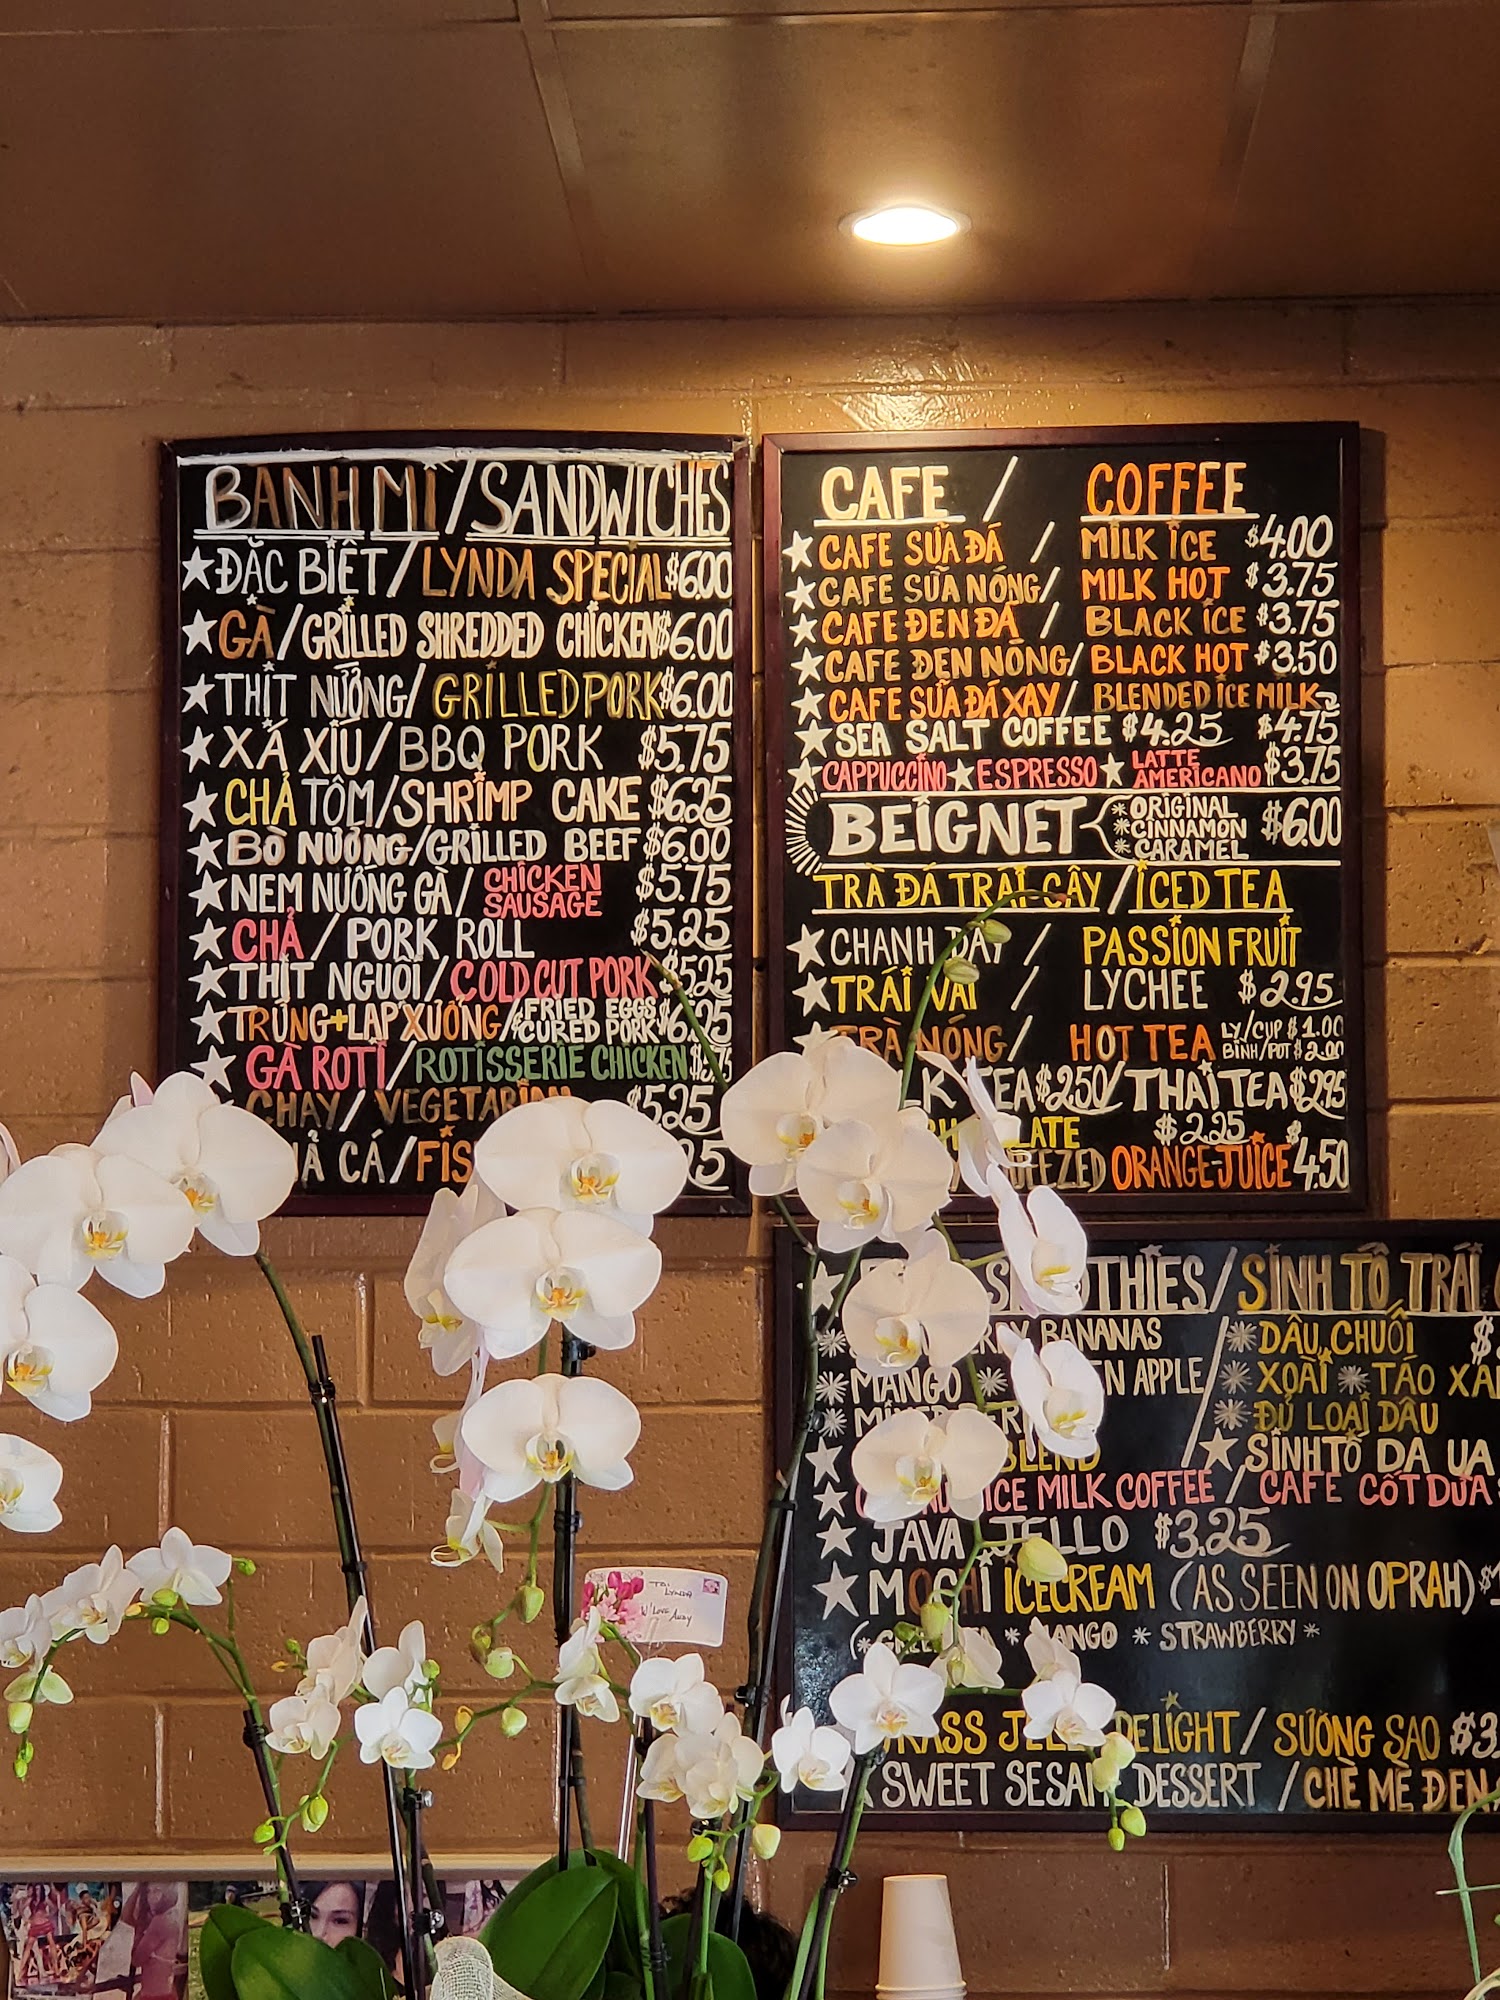 BANH MÌ / SANDWICHES
ĐẶC BIỆT / LYNDA SPECIAL $6.00
GÀ / GRILLED SHREDDED CHICKEN $6.00
THỊT NƯỚNG / GRILLED PORK $6.00
XÁ XÍU / BBQ PORK $5.75
CHẢ TÔM / SHRIMP CAKE $6.25
BÒ NƯỚNG / GRILLED BEEF $6.00
NEM NƯỚNG GÀ / CHICKEN SAUSAGE $5.75
CHẢ / PORK ROLL $5.25
THỊT NGUỘI / COLD CUT PORK $5.25
TRỨNG + LẠP XƯỞNG / FRIED EGGS & CURED PORK
GÀ ROTI / ROTISSERIE CHICKEN
CHAY / VEGETARIAN $5.25
CÁ /
CAFE / COFFEE
CAFE SỮA ĐÁ / MILK ICE $4.00
CAFE SỮA NÓNG / MILK HOT $3.75
CAFE ĐEN ĐÁ / BLACK ICE $3.75
CAFE ĐEN NÓNG / BLACK HOT $3.50
CAFE SỮA ĐÁ XAY / BLENDED ICE MILK
SEA SALT COFFEE $4.25 $4.75
CAPPUCCINO ★ ESPRESSO ★ LATTE AMERICANO $3.75
BEIGNET * ORIGINAL * CINNAMON * CARAMEL $6.00
TRÀ ĐÁ TRÁI CÂY / ICED TEA
CHANH DÂY / PASSION FRUIT
TRÁI VẢI / LYCHEE $2.95
TRÀ NÓNG / HOT TEA LY/CUP $1.00
BÌNH/POT $2.00
TEA $2.50 / THAI TEA $2.95
$2.25
ORANGE JUICE $4.50
/ SINH TỐ TRÁI
BANANAS / * DÂU CHUỐI
MANGO * APPLE / * XOÀI * TÁO
* ĐỦ LOẠI DÂU
BLEND ★ SINH TỐ DA UA
ICE MILK COFFEE / CAFE CỐT DỪA
JAVA JELLO $3.25
MOCHI ICECREAM (AS SEEN ON OPRAH)
* MANGO * STRAWBERRY *
DELIGHT / SƯƠNG SAO
SWEET SESAME DESSERT / CHÈ MÈ ĐEN
TO: LYNDA